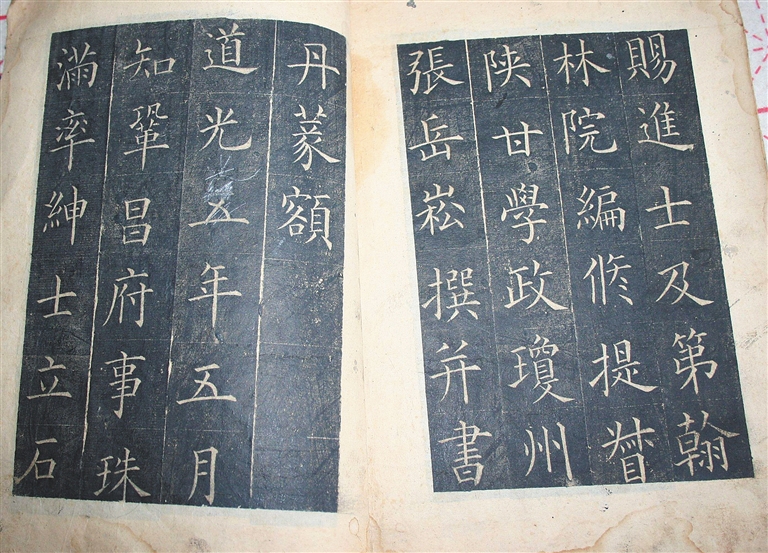 賜進士及第翰
林院編修提督
陕甘學政瓊州
張岳崧撰并書
丹蒙額
道光五年五月
知鞏昌府事珠
滿率紳士立石